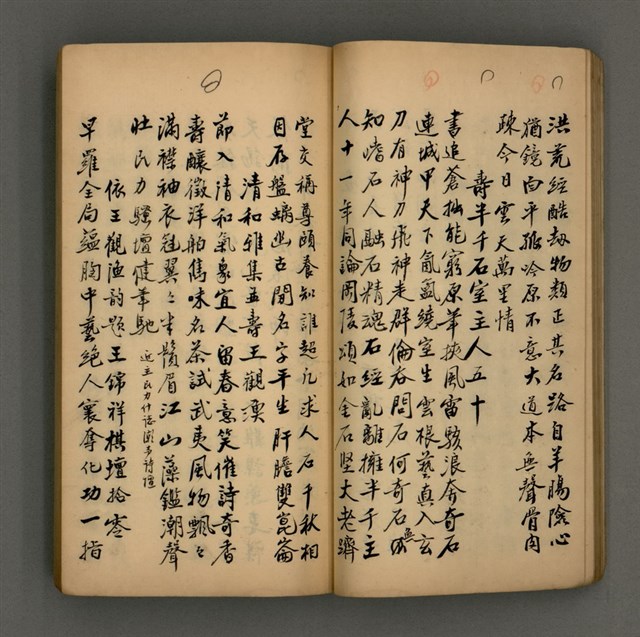 洪荒經酷劫物類正其名路自羊腸險心
猶鏡面平猴吟原不意大道本無聲骨肉
疎今日雲天萬里情
壽半千石室主人五十
書追蒼拙能窮原筆挾風雷駭浪奔奇石
連城甲天下氤氳繞室生雲根藝真入玄
刀有神刀飛神走群倫吞問石何奇石無
知嗜石人融石精魂石經亂離擁半千主
人十一年同論岡陵頌如金石堅大老躋
堂交稱尊頤養知誰超凡求人石千秋相
目存盤螭出古閒名字平生肝膽雙崑崙
清和雅集並壽王觀漁
節入清和氣象宜人留春意笑催詩奇香
壽釀徵洋舶雋味名茶試武夷風物飄々
滿襟袖衣冠翼々半鬚眉江山藻鑑潮聲
壯民力騷壇健筆馳
依王觀漁韵題王錦祥棋壇拾零
早羅全局蘊胸中藝絕人寰奪化功一指